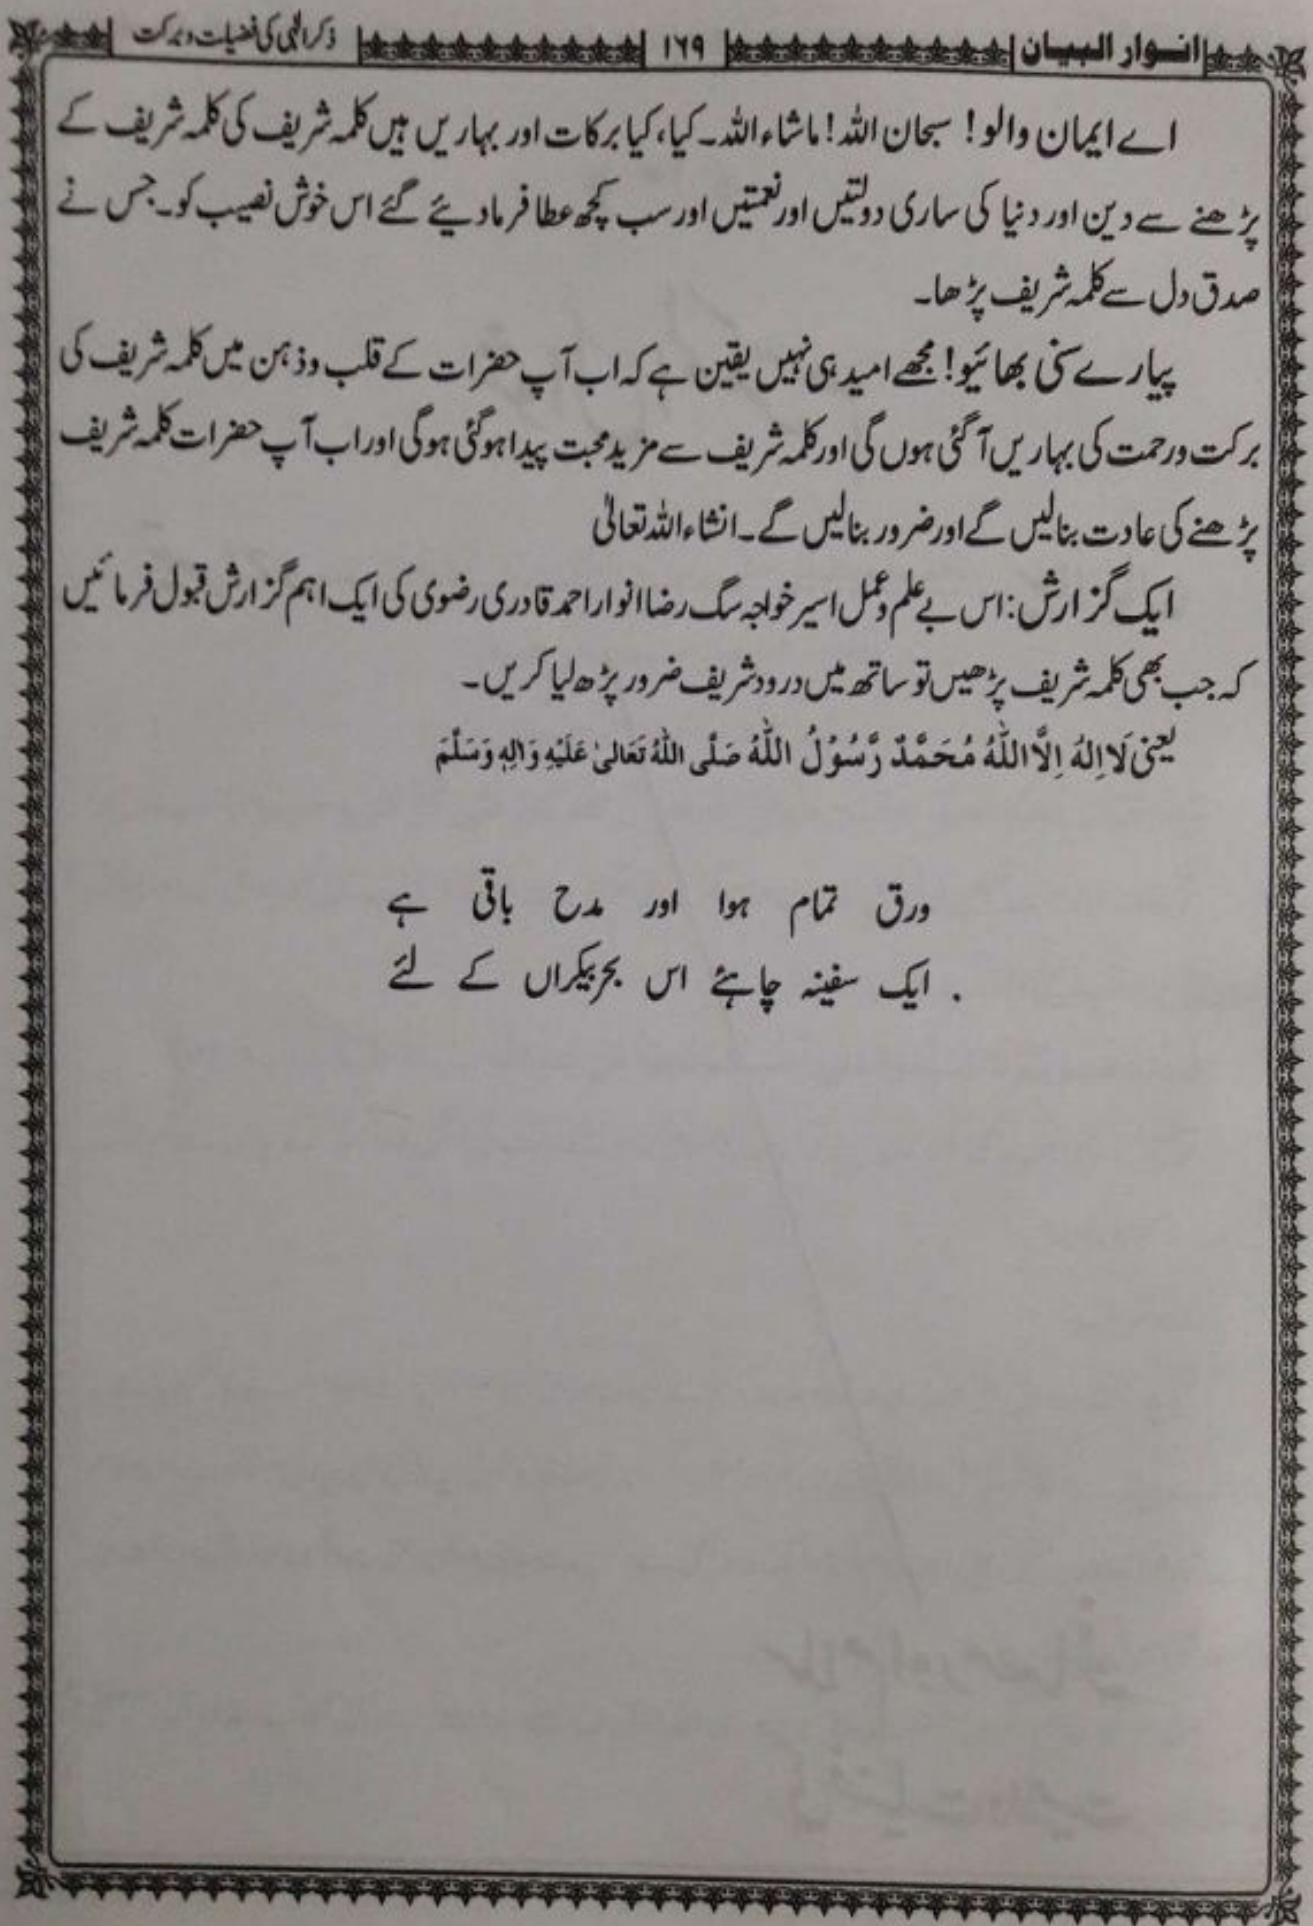 انوار البیان ۱۶۹ ذکر الٰہی کی فضیلت و برکت
اے ایمان والو! سبحان اللہ! ماشاء اللہ۔ کیا، کیا برکات اور بہاریں ہیں کلمہ شریف کی کلمہ شریف کے
پڑھنے سے دین اور دنیا کی ساری دولتیں اور نعمتیں اور سب کچھ عطا فرمادیئے گئے اس خوش نصیب کو۔ جس نے
صدق دل سے کلمہ شریف پڑھا۔
پیارے سنی بھائیو! مجھے امید ہی نہیں یقین ہے کہ اب آپ حضرات کے قلب و ذہن میں کلمہ شریف کی
برکت و رحمت کی بہاریں آ گئی ہوں گی اور کلمہ شریف سے مزید محبت پیدا ہو گئی ہوگی اور اب آپ حضرات کلمہ شریف
پڑھنے کی عادت بنالیں گے اور ضرور بنالیں گے۔ انشاء اللہ تعالیٰ
ایک گزارش: اس بے علم و عمل اسیر خواجہ سگ رضا انوار احمد قادری رضوی کی ایک اہم گزارش قبول فرمائیں
کہ جب بھی کلمہ شریف پڑھیں تو ساتھ میں درود شریف ضرور پڑھ لیا کریں۔
یعنی لَا اِلٰهَ اِلَّا اللّٰهُ مُحَمَّدٌ رَّسُوْلُ اللّٰهُ صَلَّى اللّٰهُ تَعَالىٰ عَلَيْهِ وَاٰلِهٖ وَسَلَّمَ
ورق تمام ہوا اور مدح باقی ہے
ایک سفینہ چاہئے اس بحر بیکراں کے لئے